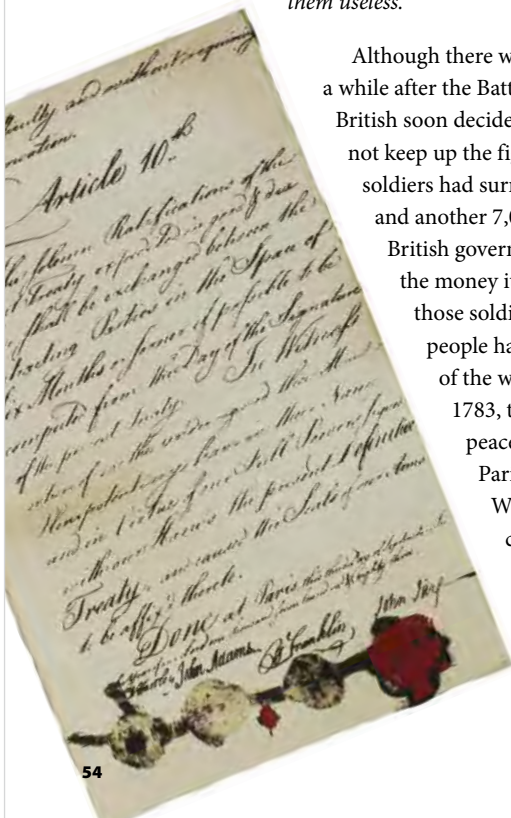 them useless.
Although there w
a while after the Batt
British soon decide
not keep up the fi
soldiers had surr
and another 7,0
British govern
the money i
those soldi
people ha
of the w
1783, t
peace
Pari
W
c
faculty and without requiring
Article 10th
The solemn Ratifications of the
Treaty expedited in good & due
shall be exchanged between the
Parties in the Space of
Months or sooner if possible to be
computed from the Day of the Signature
of the present Treaty. In Witness
whereof we the undersigned their
Plenipotentiaries have in their Name
and in Virtue of our Full Powers signed
with our Hands the present Definitive
Treaty, and caused the Seals of our Arms
to be affix'd thereto.
Done at Paris this third Day of September
John Adams B Franklin John Jay
54